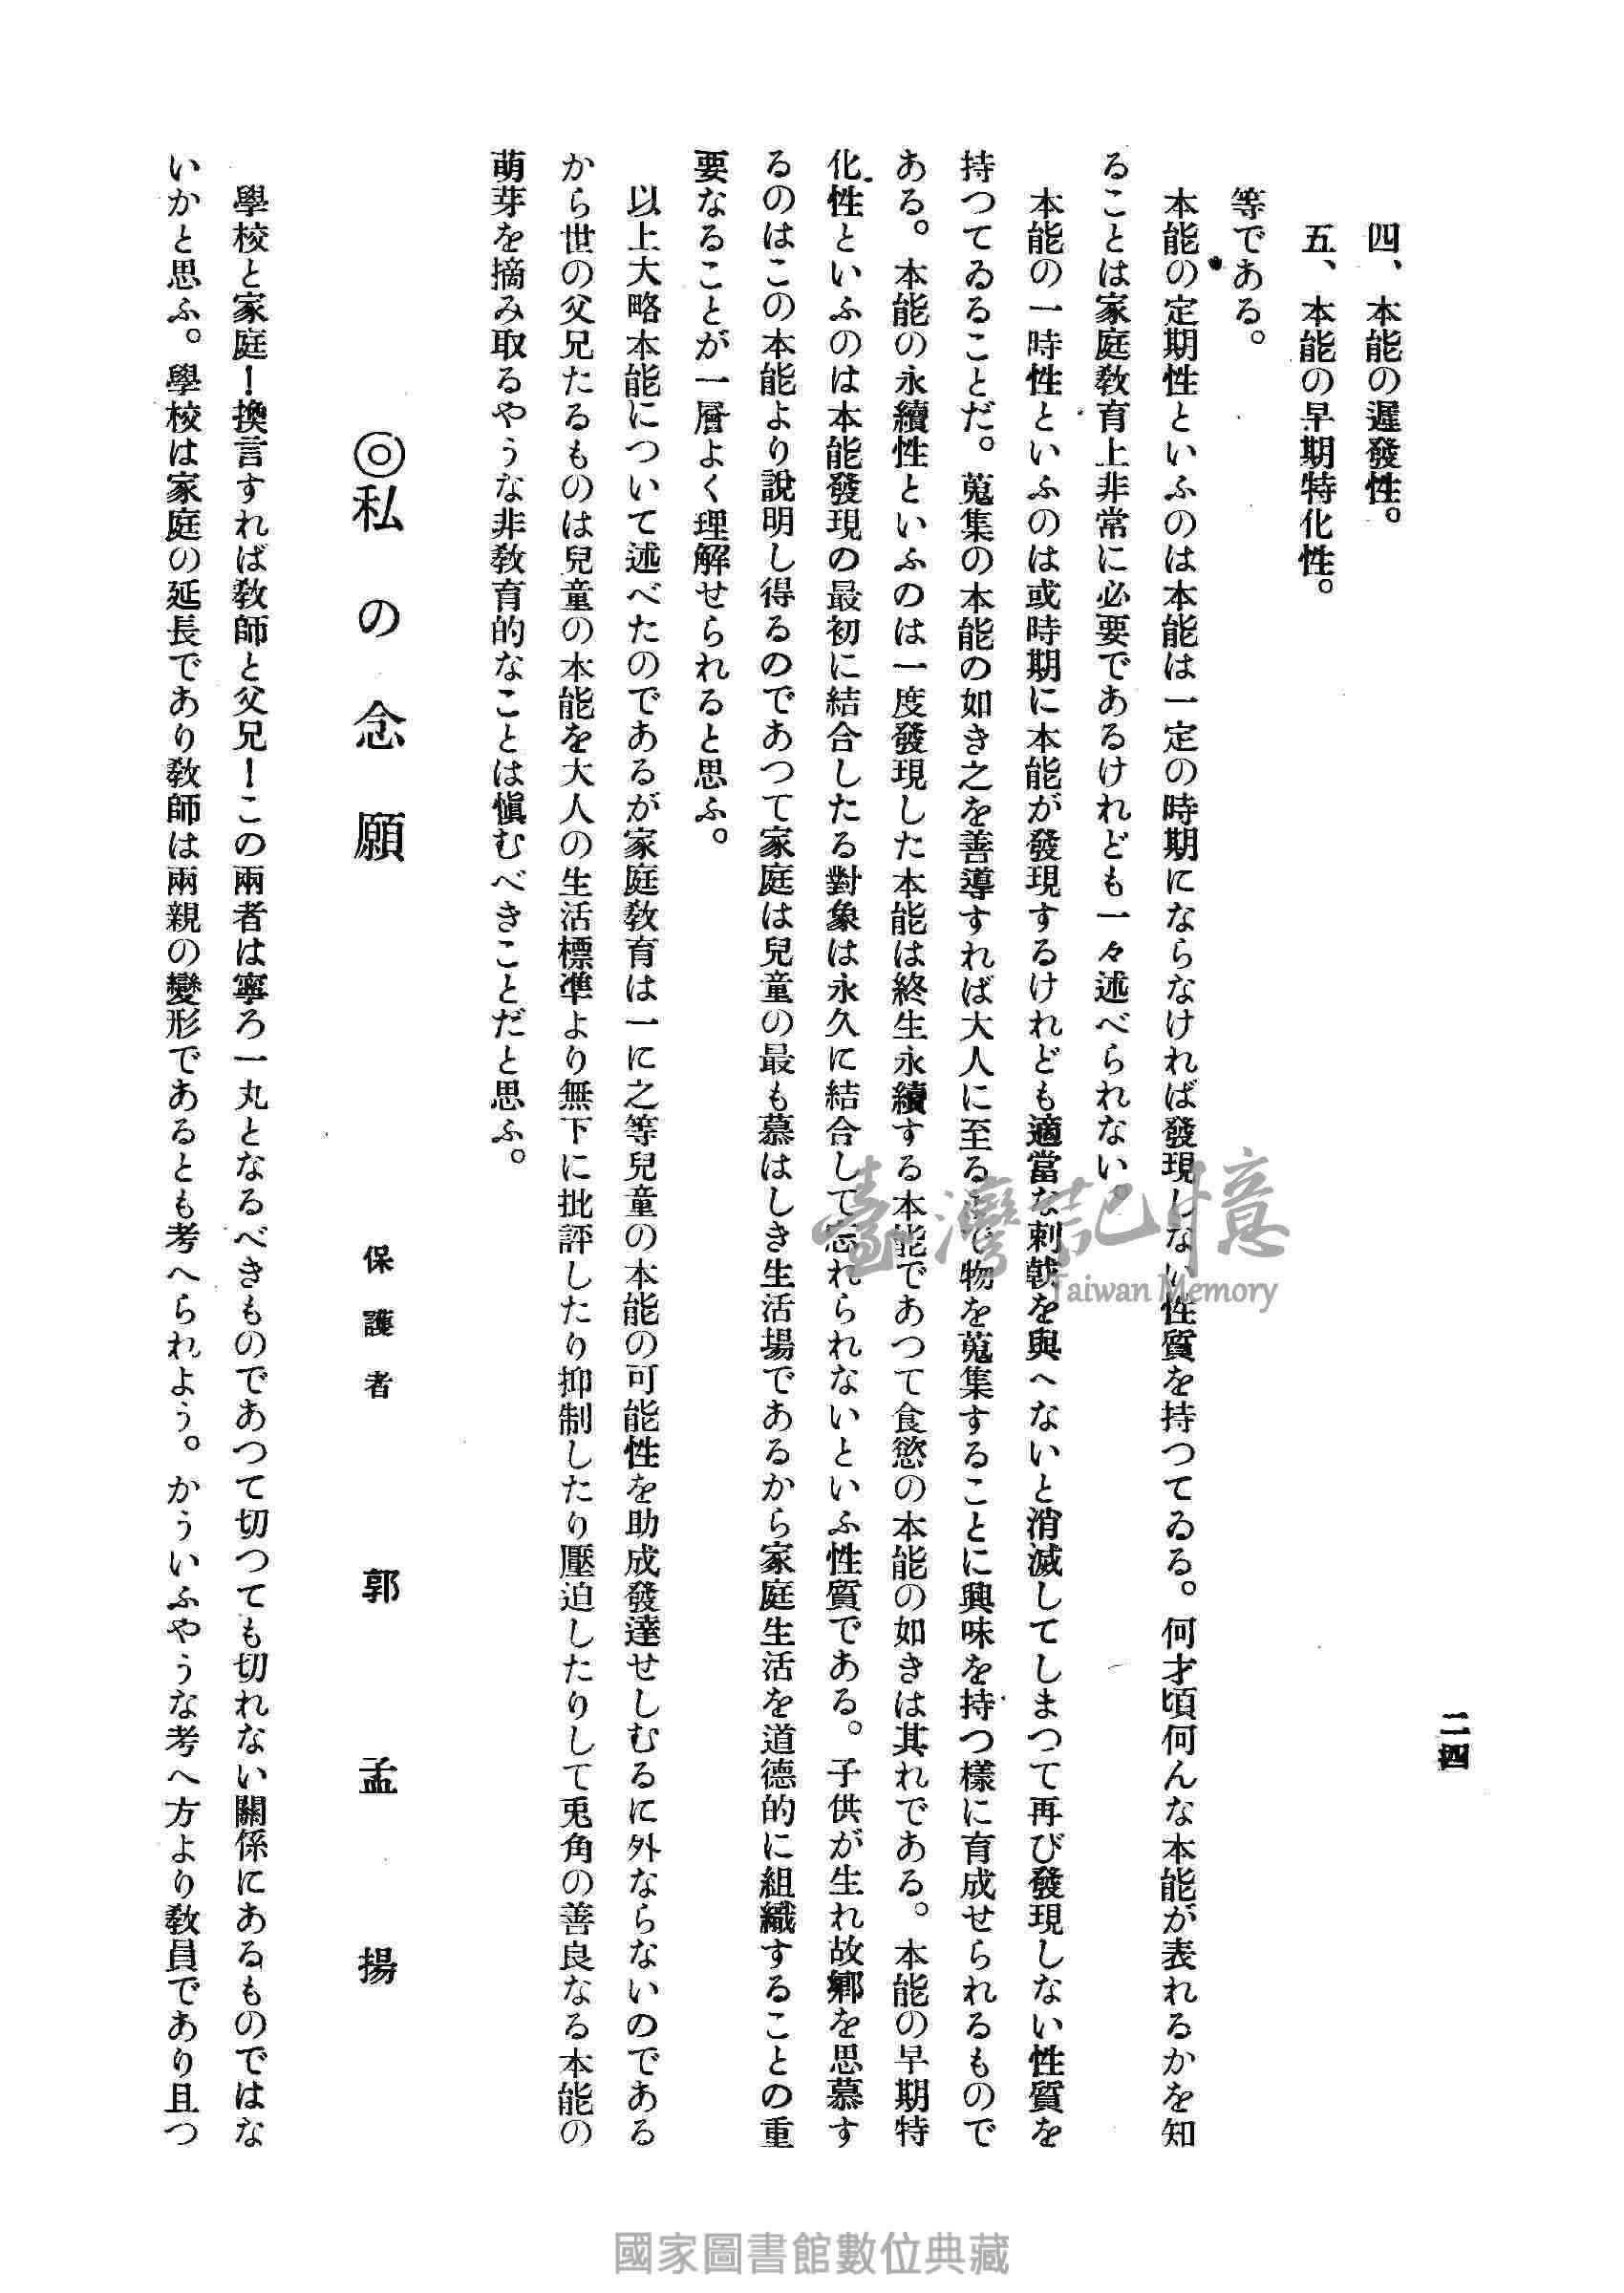 二四
四、本能の遲發性。
五、本能の早期特化性。
等である。
本能の定期性といふのは本能は一定の時期にならなければ發現しない性質を持つてゐる。何才頃何んな本能が表れるかを知
ることは家庭敎育上非常に必要であるけれども一々述べられない。
本能の一時性といふのは或時期に本能が發現するけれども適當な刺戟を與へないと消滅してしまつて再び發現しない性質を
持つてゐることだ。蒐集の本能の如き之を善導すれば大人に至るまで物を蒐集することに興味を持つ樣に育成せられるもので
ある。本能の永續性といふのは一度發現した本能は終生永續する本能であつて食慾の本能の如きは其れである。本能の早期特
化性といふのは本能發現の最初に結合したる對象は永久に結合して忘れられないといふ性質である。子供が生れ故鄕を思慕す
るのはこの本能より說明し得るのであつて家庭は兒童の最も慕はしき生活場であるから家庭生活を道德的に組織することの重
要なることが一層よく理解せられると思ふ。
以上大略本能について述べたのであるが家庭敎育は一に之等兒童の本能の可能性を助成發達せしむるに外ならないのである
から世の父兄たるものは兒童の本能を大人の生活標準より無下に批評したり抑制したり壓迫したりして兎角の善良なる本能の
萌芽を摘み取るやうな非敎育的なことは愼むべきことだと思ふ。
◎私の念願
保護者 郭孟揚
學校と家庭！換言すれば敎師と父兄！この兩者は寧ろ一丸となるべきものであつて切つても切れない關係にあるものではな
いかと思ふ。學校は家庭の延長であり敎師は兩親の變形であるとも考へられよう。かういふやうな考へ方より敎員であり且つ
臺灣記憶
Taiwan Memory
國家圖書館數位典藏